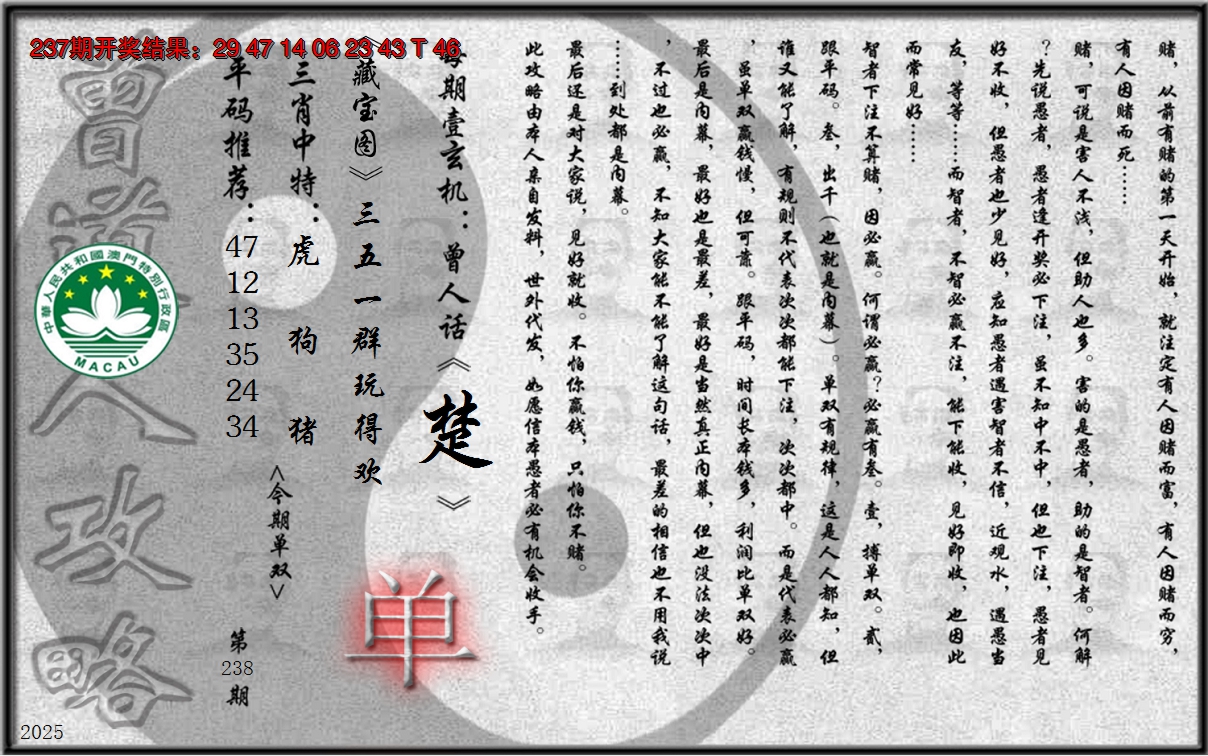 237期开奖结果：29 47 14 06 23 43 T 46
赌，从前有赌的第一天开始，就注定有人因赌而富，有人因赌而穷，
有人因赌而死……
赌，可说是害人不浅，但助人也多。害的是愚者，助的是智者。何解
？先说愚者，愚者逢开奖必下注，虽不知中不中，但也下注，愚者见
好不收，但愚者也少见好，应知愚者遇害智者不信，近观水，遇愚当
友，等等……而智者，不智必赢不注，能下能收，见好即收，也因此
而常见好……
智者下注不算赌，因必赢。何谓必赢？必赢有叁。壹，搏单双。贰，
跟平码。叁，出千（也就是内幕）。单双有规律，这是人人都知，但
谁又能了解，有规则不代表次次都能下注，次次都中。而是代表必赢
，虽单双赢钱慢，但可靠。跟平码，时间长本钱多，利润比单双好。
最后是内幕，最好也是最差，最好是当然真正内幕，但也没法次次中
，不过也必赢，不知大家能不能了解这句话，最差的相信也不用我说
……到处都是内幕。
最后还是对大家说，见好就收。不怕你赢钱，只怕你不赌。
此攻略由本人亲自发料，世外代发，如愿信本愚者必有机会收手。
每期壹玄机：曾人话《楚》
《藏宝图》三五一群玩得欢
三肖中特：虎 狗 猪
平码推荐：
47
12
13
35
24
34
<今期单双>
单
第
238
期
曾道人攻略
中華人民共和國澳門特別行政區
MACAU
2025